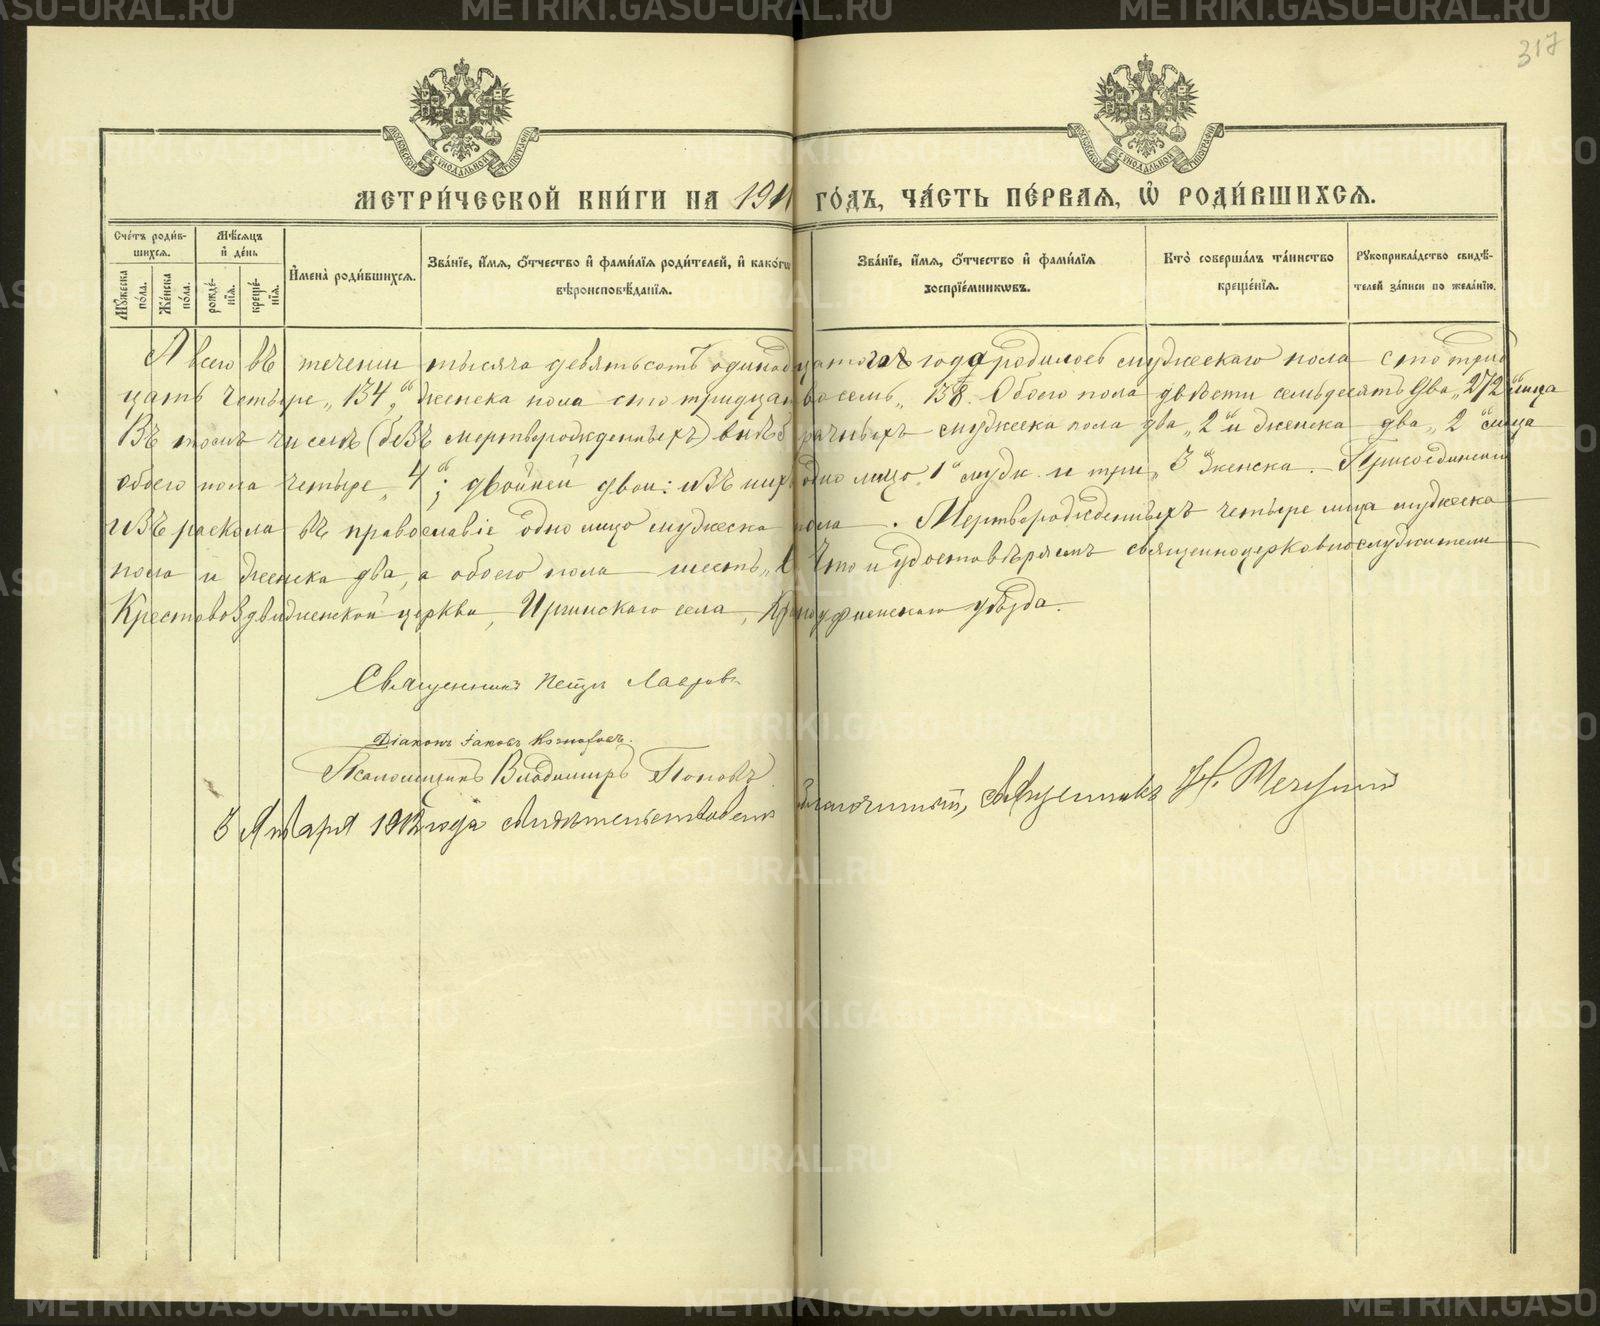 317
МЕТРИ́ЧЕСКОЙ КНИ́ГИ НА 1911 ГО́ДЪ, ЧА́СТЬ ПЕ́РВАЯ, Ѡ҆ РОДИ́ВШИХСЯ.
Сче́тъ роди́вшихся.
Мꙋ́жеска по́ла.
Же́нска по́ла.
Мѣ́сяцъ и҆ де́нь
рожде́нїя.
креще́нїя.
И҆мена̀ роди́вшихся.
Зва́нїе, и҆́мя, ѻ҆́тчество и҆ фами́лїя роди́телей, и҆ како́гѡ
вѣроисповѣ́данїя.
Зва́нїе, и҆́мя, ѻ҆́тчество и҆ фами́лїя
воспрїе́мникѡвъ.
Кто̀ соверша́лъ та́инство
креще́нїя.
Рꙋкоприкла́дство свидѣ́-
телей за́писи по жела́нїю.
А всего въ течении тысяча девятьсотъ одинадцатого года родилось мужескаго пола сто трид
цать четыре „134“, женска пола сто тридцать восемь „138. Обоего пола двѣсти семьдесятъ два „272“ лица
Въ томъ числѣ (безъ мертворожденныхъ) внѣбрачныхъ мужеска пола два „2“ и женска два „2“ лица
обоего пола четыре „4“; двойней двои: изъ нихъ одно лицо „1“ муж. и три „3“ женска. Присоединении
изъ раскола въ православіе одно лицо мужеска пола. Мертворожденныхъ четыре лица мужеска
пола и женска два, а обоего пола шесть „6 Что и удостовѣряемъ священноцерковнослужители
Крестовоздвиженской церкви, Иргинскаго села, Красноуфимскаго уѣзда.
Священникъ Петръ Лавровъ
Діаконъ Іаковъ
Псаломщикъ Владимиръ Поповъ
3 Января 1912 года свидѣтельствовалъ Благочинный, Священникъ Н.